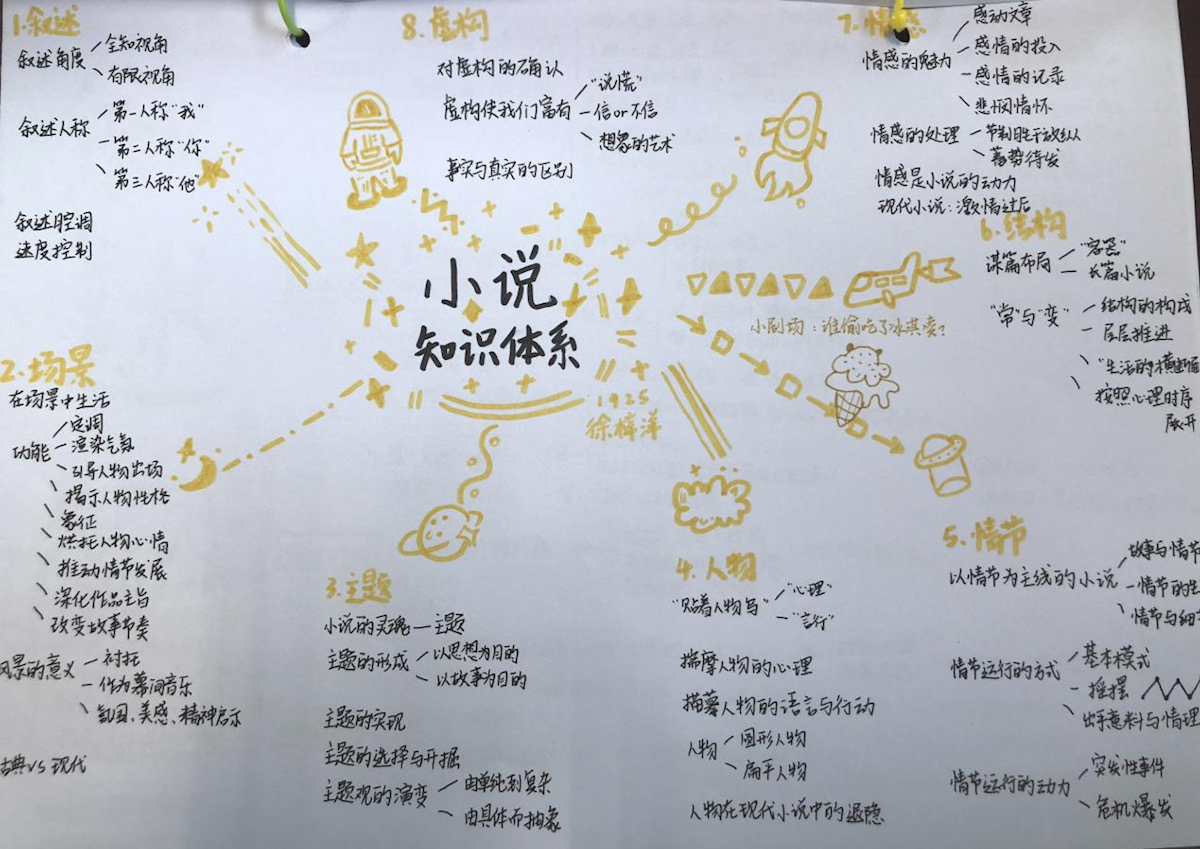 1.叙述
叙述角度
全知视角
有限视角
叙述人称
第一人称“我”
第二人称“你”
第三人称“他”
叙述腔调
速度控制
8.虚构
对虚构的确认
虚构使我们富有
“说慌”
信or不信
想象的艺术
事实与真实的区别
7.情感
情感的魅力
感动文章
感情的投入
感情的记录
悲悯情怀
情感的处理
节制胜于放纵
蓄势待发
情感是小说的动力
现代小说:激情过后
6.结构
谋篇布局
“容器”
长篇小说
“常”与“变”
结构的构成
层层推进
“生活的横断面
按照心理时序
展开
小说
知识体系
1925
徐梓洋
小剧场:谁偷吃了冰淇凌?
2.场景
在场景中生活
功能
定调
渲染气氛
引导人物出场
揭示人物性格
象征
烘托人物心情
推动情节发展
深化作品主旨
改变故事节奏
风景的意义
衬托
作为幕间音乐
氛围、美感、精神启示
古典vs现代
3.主题
小说的灵魂—主题
主题的形成
以思想为目的
以故事为目的
主题的实现
主题的选择与开掘
主题观的演变
由单纯到复杂
由具体而抽象
4.人物
“贴着人物写”
“心理”
“言行”
揣摩人物的心理
描摹人物的语言与行动
人物
圆形人物
扁平人物
人物在现代小说中的退隐
5.情节
以情节为主线的小说
故事与情节
情节的
情节与细
情节运行的方式
基本模式
摇摆
出乎意料与情理
情节运行的动力
突发性事件
危机爆发